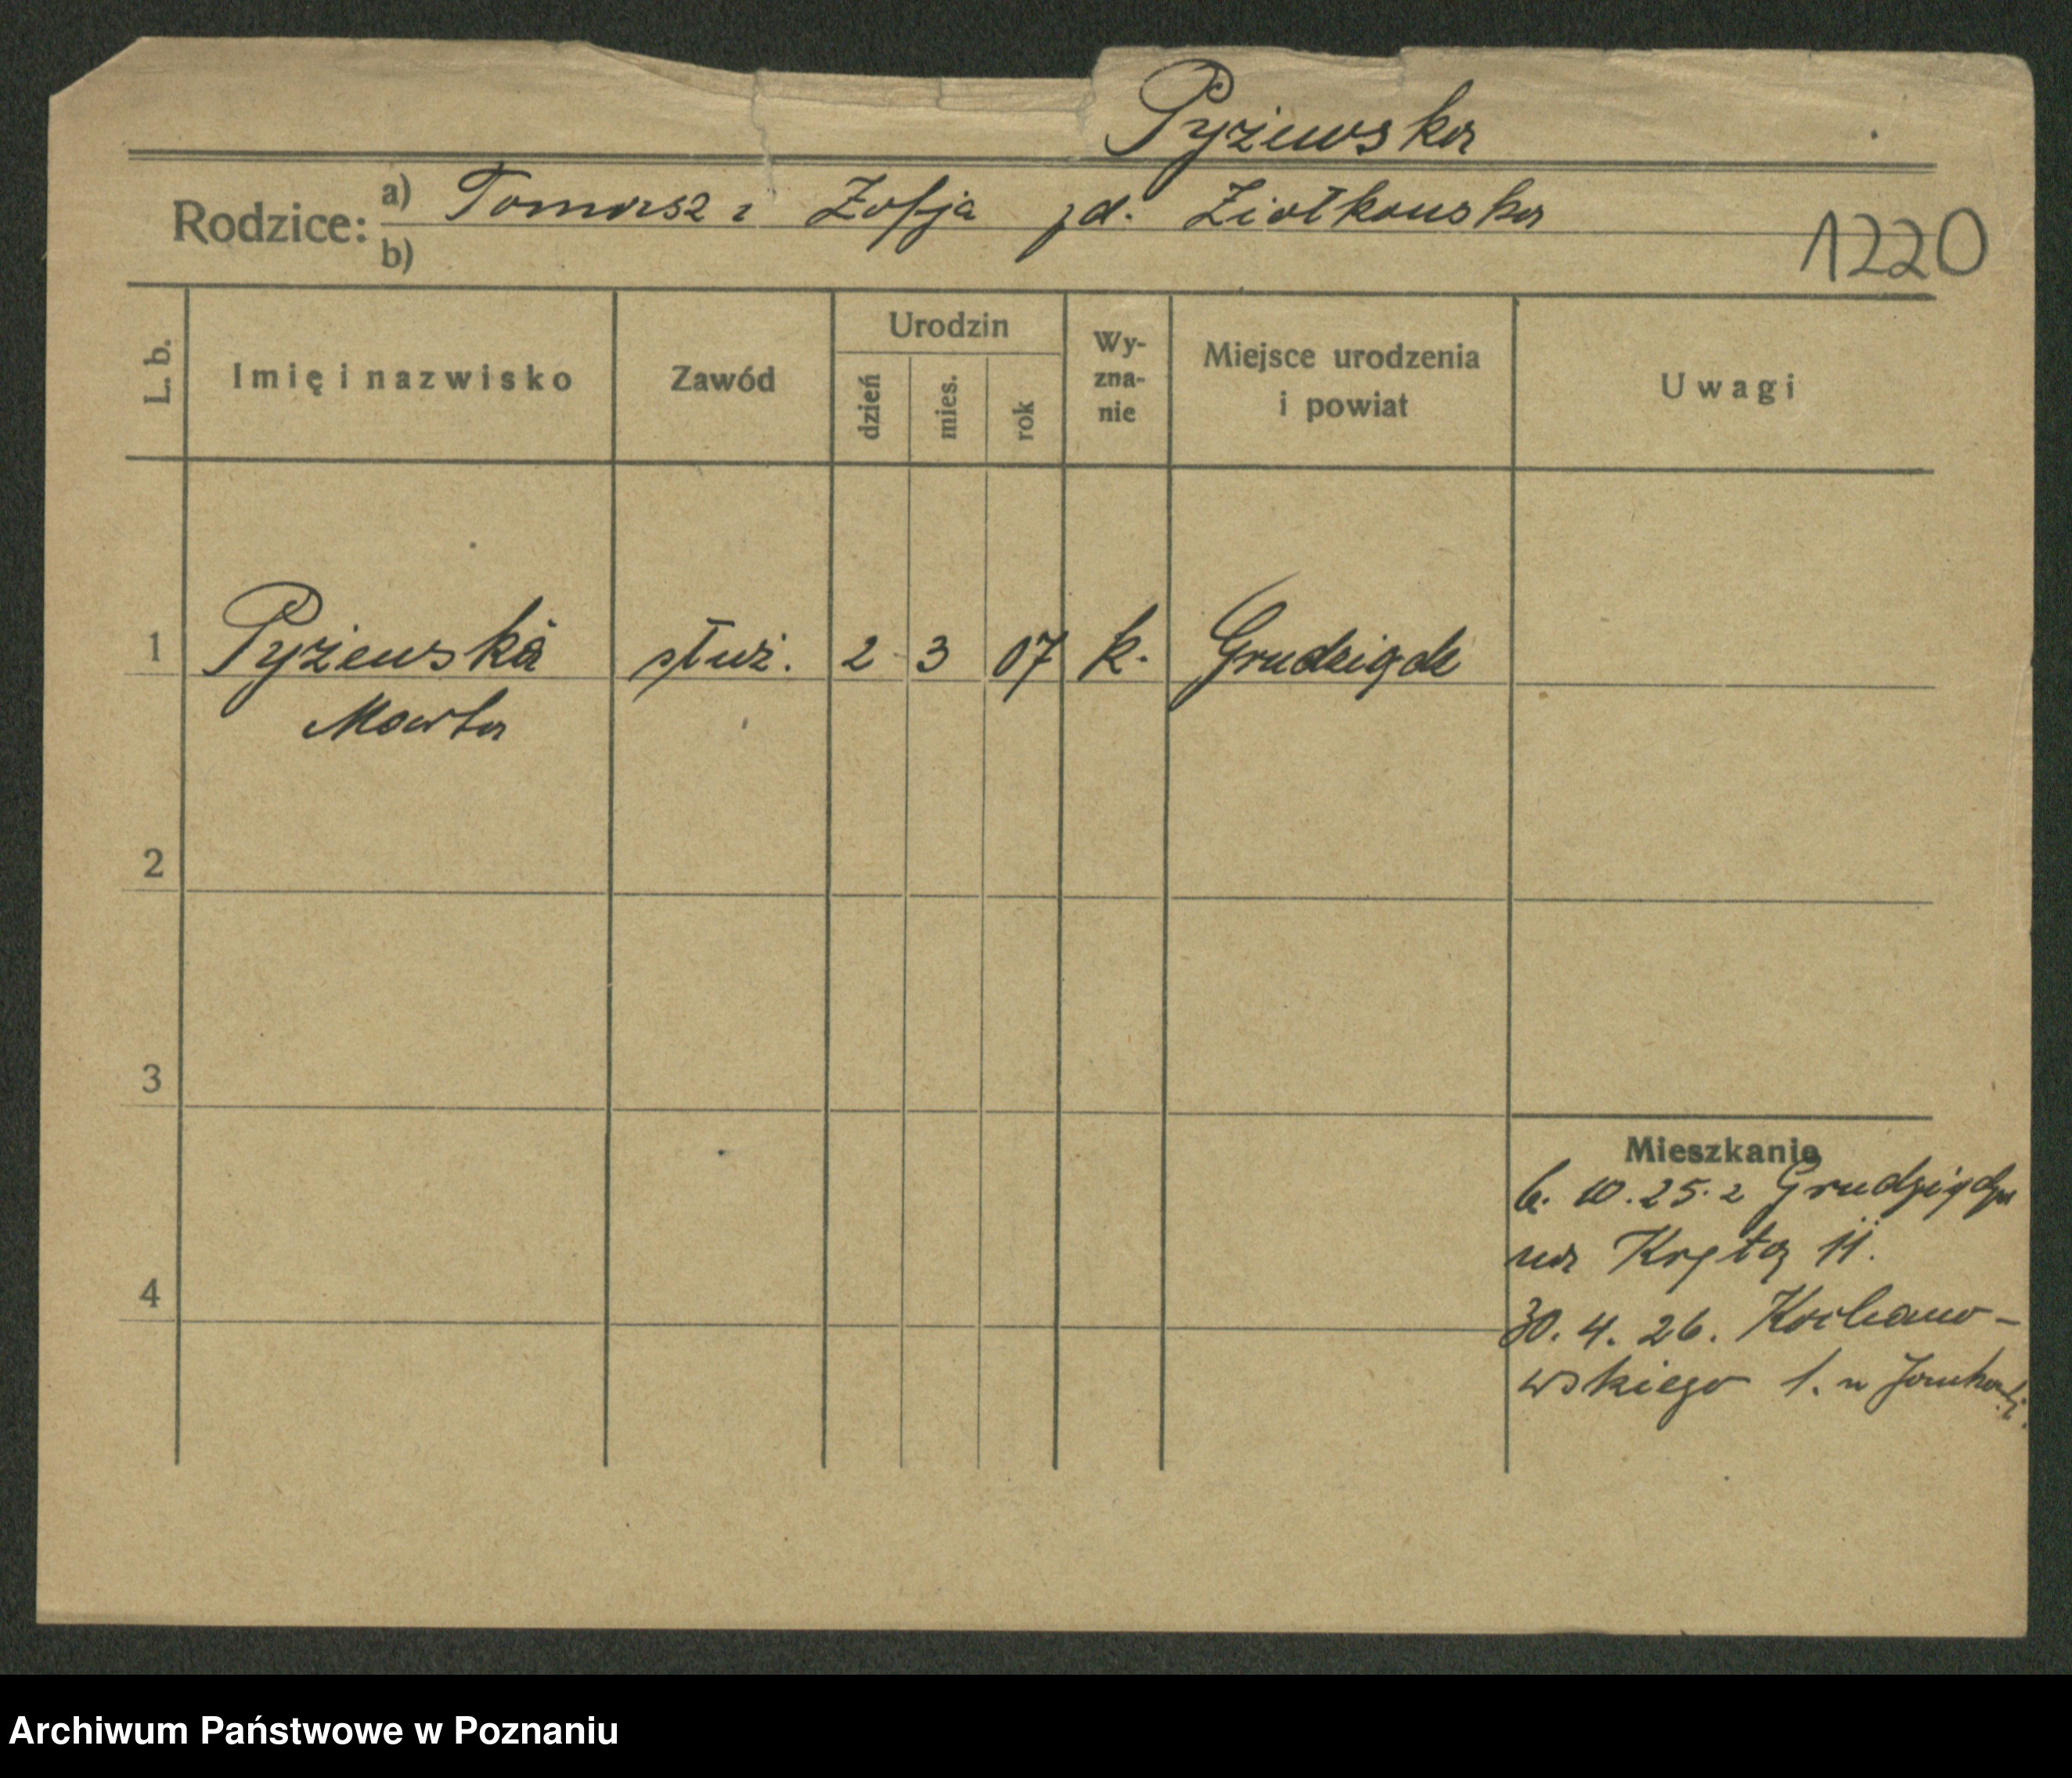 Pyżewska
Rodzice: a) Tomasz i Zofja zd. Ziołkowska
b)
1220
L. b. Imię i nazwisko Zawód Urodzin dzień mies. rok Wy-zna-nie Miejsce urodzenia i powiat Uwagi
1 Pyżewska służ. 2 3 07 k. Grudziądz
Marta
2
3
4
Mieszkanie
6. 10. 25. z Grudziądza
na Krętą 11.
30. 4. 26. Kochano-
wskiego 1. u
Archiwum Państwowe w Poznaniu